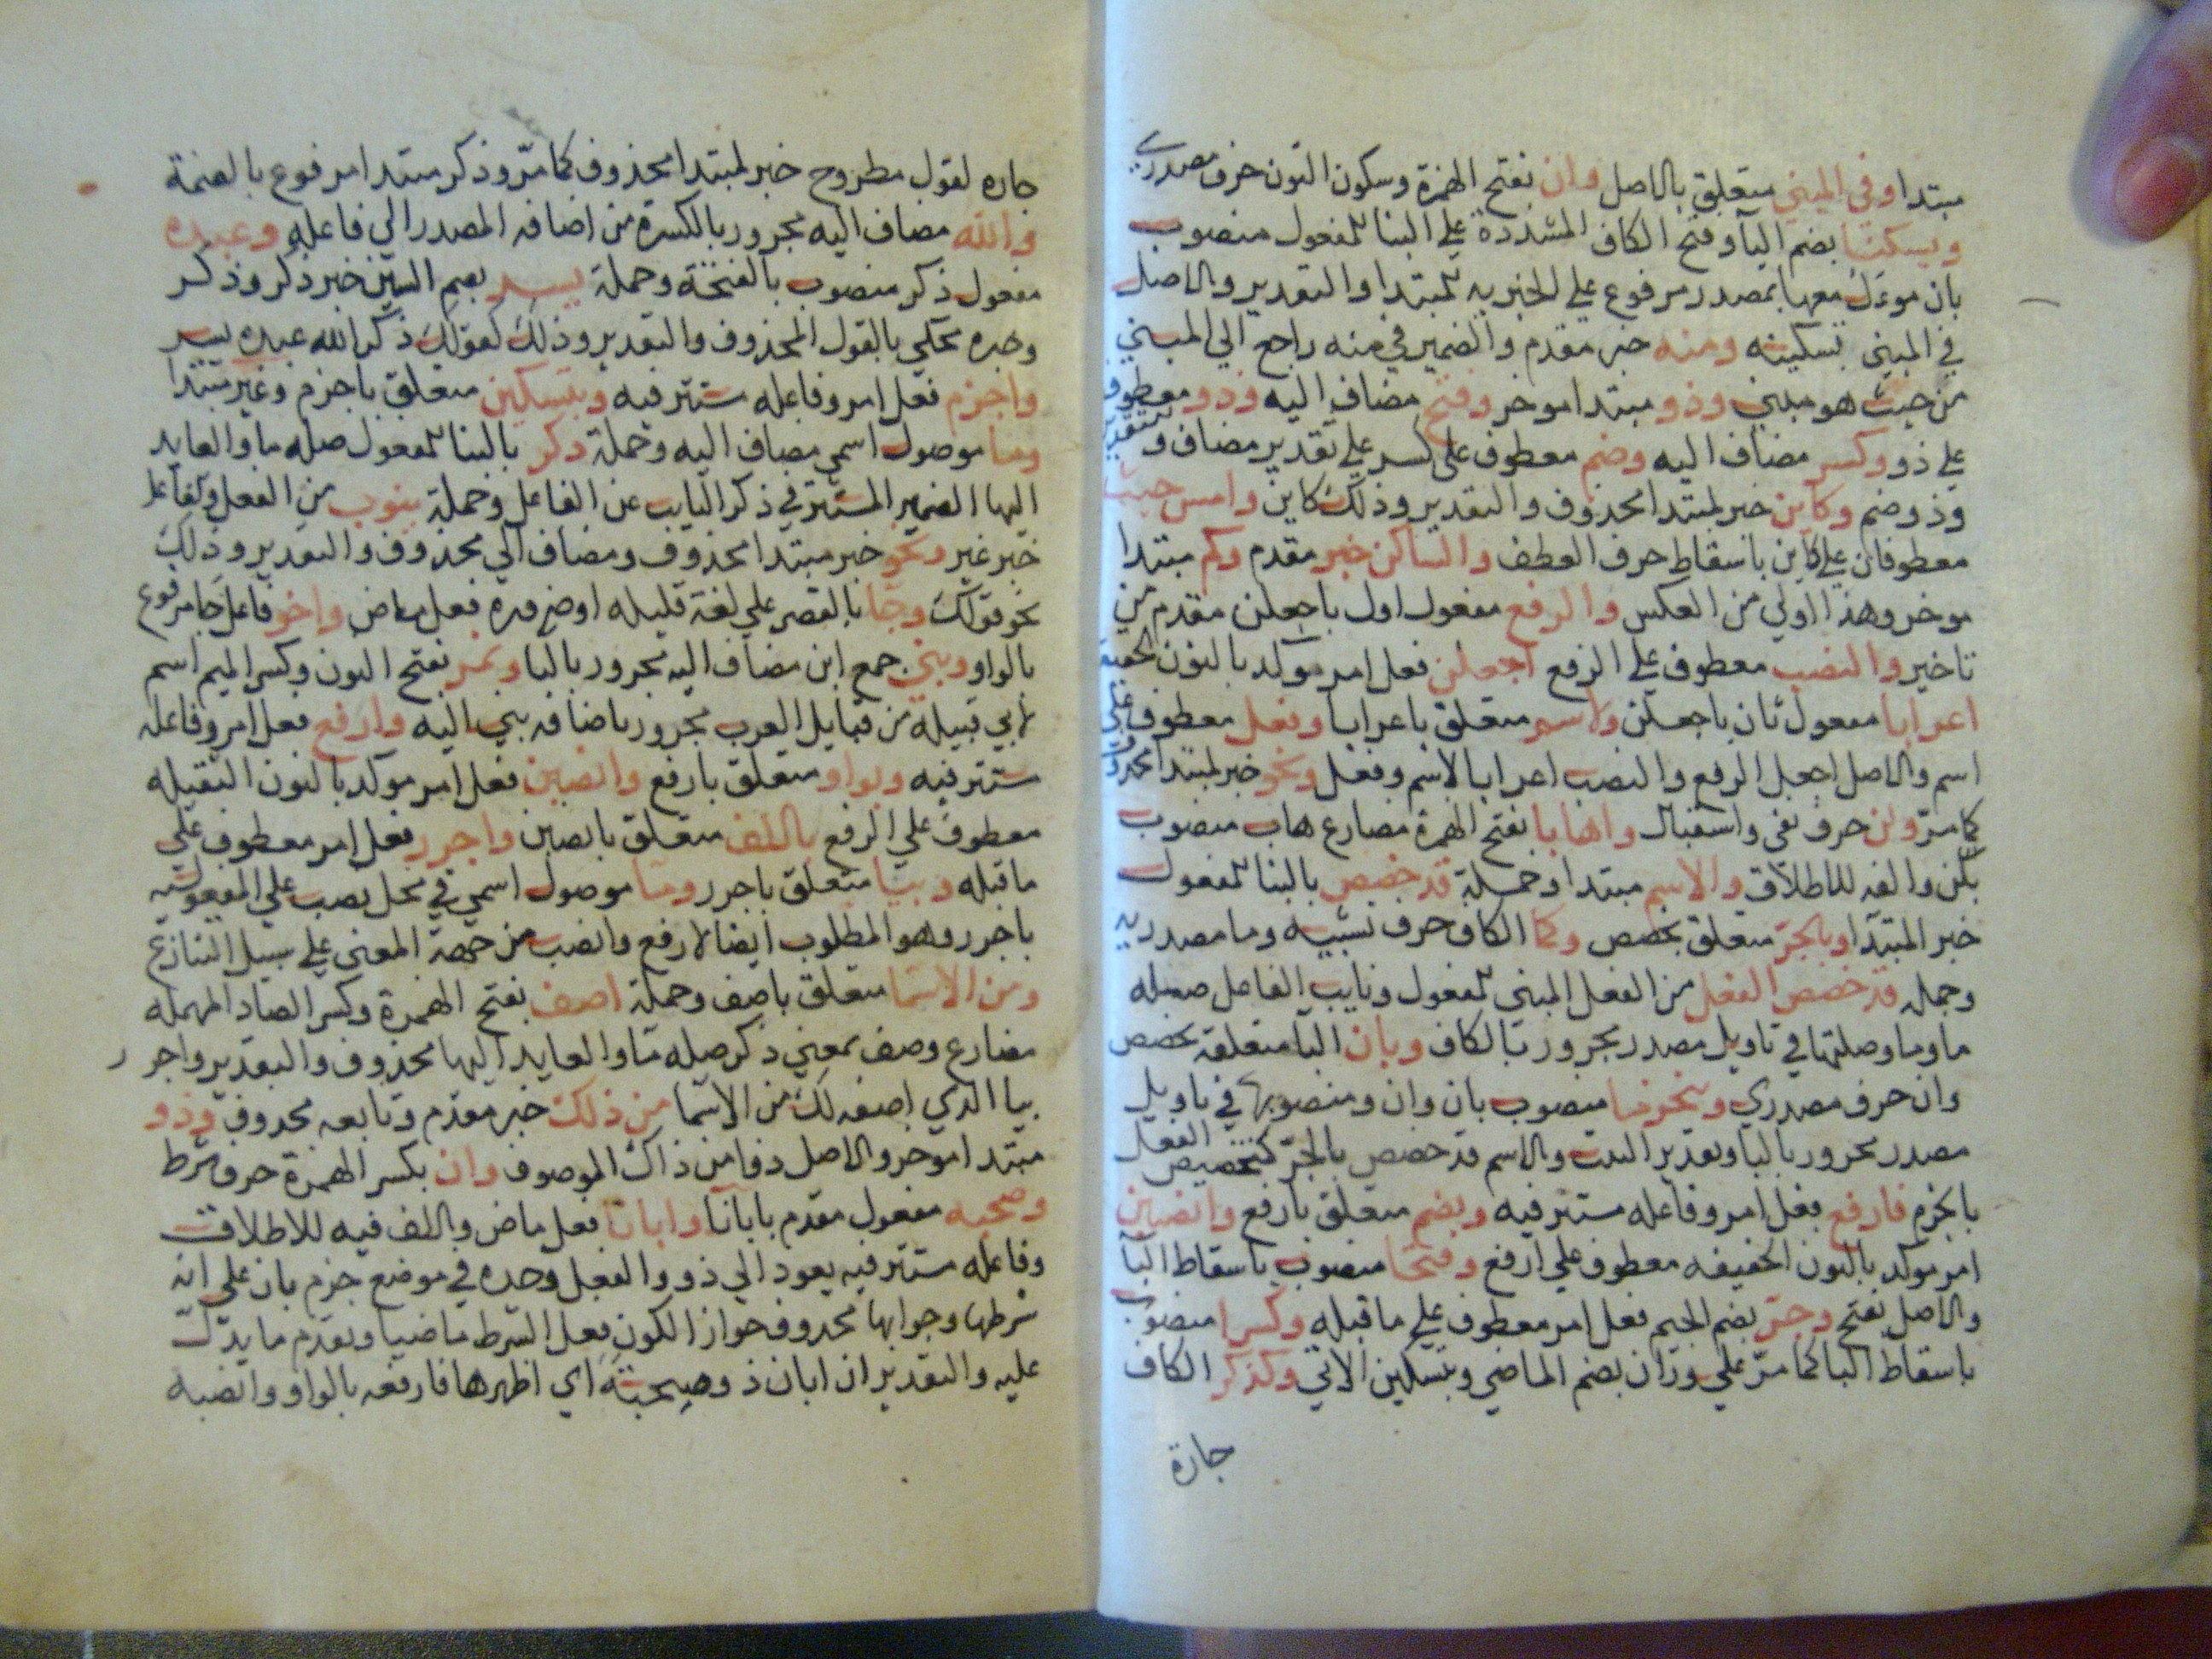 مبتدا وفي المبني متعلق بالاصل وان بفتح الهمزة وسكون النون حرف مصدري
ويسكنا بضم اليآ وفتح الكاف المشددة على البنا للمفعول منصوب
بان موءل معها بمصدر مرفوع على الخبريه للمبتدا والتقدير والاصل
في المبني تسكينه ومنه خبر مقدم والضمير في منه راجع الى المبني
من حيث هو مبني وذو مبتدا موخر وفتح مضاف اليه وذو معطوف
على ذو وكسر مضاف اليه وضم معطوف على كسر على تقدير مضاف والتقدير
وذو ضم وكاين خبر لمبتدا محذوف والتقدير وذلك كاين وامس حيث
معطوفان على كاين باسقاط حرف العطف والساكن خبر مقدم وكم مبتدا
موخر وهذا اولي من العكس والرفع مفعول اول باجعلن مقدم من
تاخير والنصب معطوف على الرفع اجعلن فعل امر موكد بالنون الخفيفه
اعرابا مفعول ثان باجعلن ولاسم متعلق باعرابا وفعل معطوف على
اسم والاصل اجعل الرفع والنصب اعرابا لاسم وفعل ونحو خبر لمبتدا محذوف
كما مرّ ولن حرف نفي واستقبال واهابا بفتح الهمزة مضارع هاب منصوب
بلن والفه للاطلاق والاسم مبتدا وجملة قد خصص بالبنا للمفعول
خبر المبتدا وبالجرّ متعلق بخصص وكما الكاف حرف تشبيه وما مصدريه
وجمله قد خصص الفعل من الفعل المبني للمفعول ونايب الفاعل صله
ما وما وصلتها في تاويل مصدر مجرور بالكاف وبان البآ متعلقة بخصص
وان حرف مصدري وينجزما منصوب بان وان ومنصوبها في تاويل
مصدر مجرور بالبا وتقدير البيت والاسم قد خصص بالجرّ كتخصيص الفعل
بالجزم فارفع فعل امر وفاعله مستتر فيه وبضم متعلق بارفع وانصبن
امر موكد بالنون الخفيفه معطوف على ارفع وفتحا منصوب باسقاط البآ
والاصل بفتح وجرّ بضم الجيم فعل امر معطوف على ما قبله وكسرا منصوب
باسقاط البا كما مرّ على وزان بضم الماضي وبتسكين الاتي وكذكر الكاف
جارة
جاره لقول مطروح خبر لمبتدا محذوف كما مرّ وذكر مبتدا مرفوع بالضمة
والله مضاف اليه مجرور بالكسرة من اضافه المصدر الى فاعله وعبده
مفعول ذكر منصوب بالفتحة وجملة يسر بضم السين خبر ذكر وذكر
وخبره محكي بالقول المحذوف والتقدير وذلك كقولك ذكر الله عبده يسر
واجزم فعل امر وفاعله مستتر فيه وبتسكين متعلق باجزم وغير مبتدا
وما موصول اسمي مضاف اليه وجملة ذكر بالبنا للمفعول صله ما والعايد
اليها الضمير المستتر في ذكر النايب عن الفاعل وجملة ينوب من الفعل والفاعل
خبر غير ونحو خبر مبتدا محذوف ومضاف الى محذوف والتقدير وذلك
نحو قولك وجا بالقصر على لغة قليله او ضروره فعل ماض واخو فاعل جا مرفوع
بالواو وبني جمع ابن مضاف اليه مجرور باليا ونمر بفتح النون وكسر الميم اسم
لابي قبيله من قبايل العرب مجرور باضافه بني اليه وارفع فعل امر وفاعله
مستتر فيه وبواو متعلق بارفع وانصبن فعل امر موكد بالنون الثقيله
معطوف على ارفع بالالف متعلق بانصبن واجرر فعل امر معطوف على
ما قبله وبيا متعلق باجرر وما موصول اسمي في محل نصب على المفعوليه
باجرر وهو المطلوب ايضا لارفع وانصب من جهة المعني على سبيل التنازع
ومن الاسما متعلق باصف وجملة اصف بفتح الهمزة وكسر الصاد المهمله
مضارع وصف بمعني ذكر صله ما والعايد اليها محذوف والتقدير واجرر
بيا الذي اصفه لك من الاسما من ذلك خبر مقدم وتابعه محذوف وذو
مبتدا موخر والاصل ذو من ذاك الموصوف وان بكسر الهمزة حرف شرط
وصحبه مفعول مقدم بابانا وابانا فعل ماض والالف فيه للاطلاق
وفاعله مستتر فيه يعود الى ذو والفعل وحده في موضع جزم بان على انه
شرطها وجوابها محذوف جواز الكون فعل الشرط ماضيا وتقدم ما يدل
عليه والتقدير ان ابان ذو صحبة اي اظهرها فارفعه بالواو وانصبه